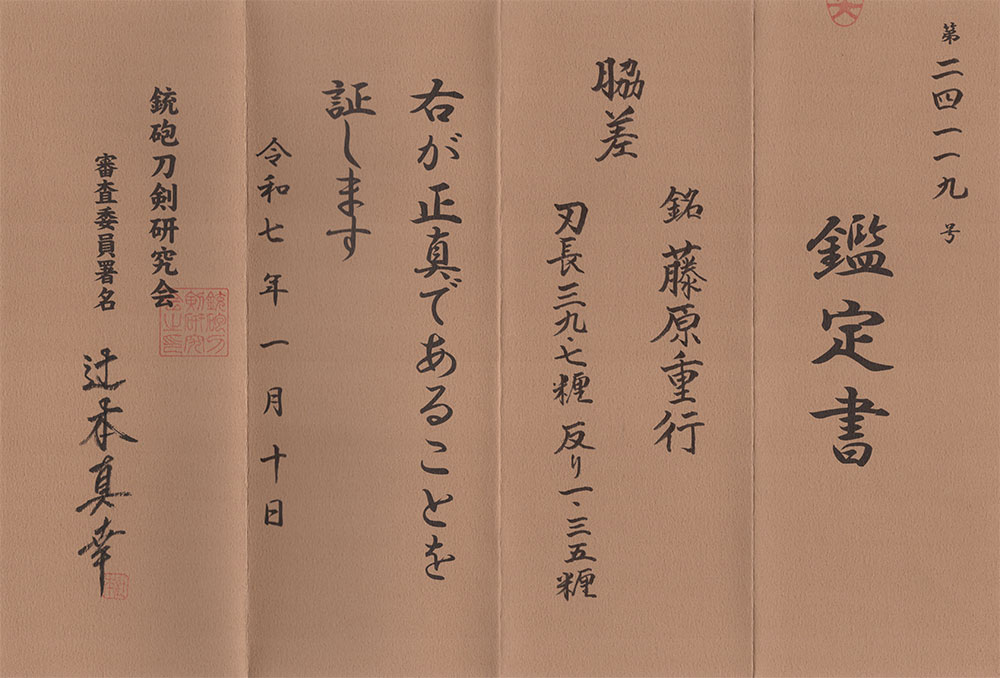 第二四一一九号
鑑定書
脇差
銘 藤原重行
刃長三九、七糎 反り一、三五糎
右が正真であることを
証します
令和七年一月十日
銃砲刀剣研究会
審査委員署名
辻本真幸
銃砲刀
剣研究
会之印